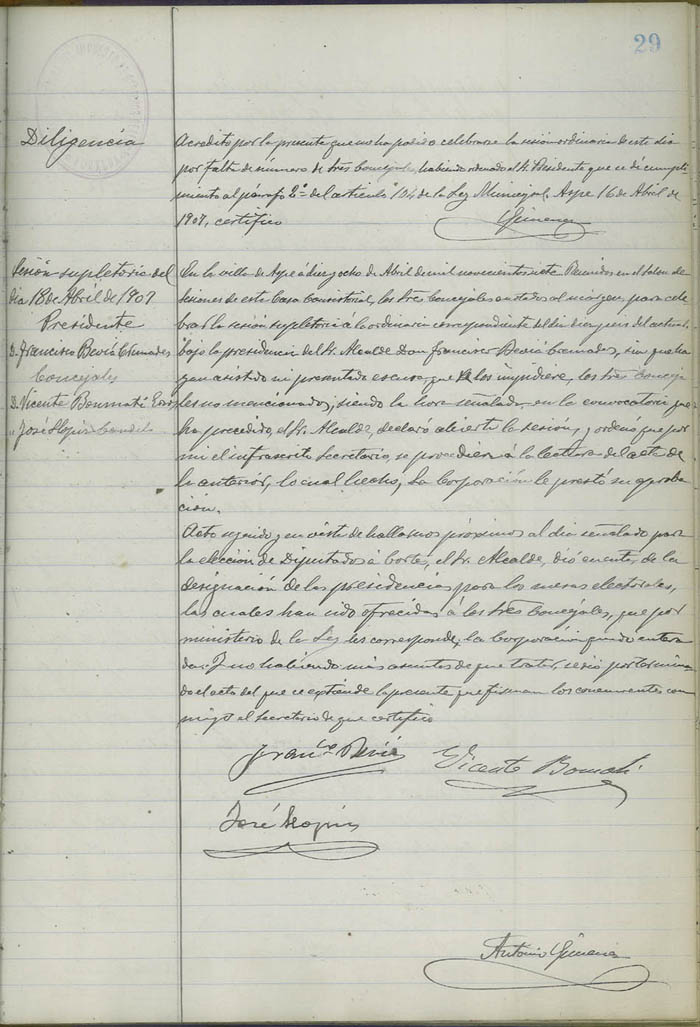 29
Diligencia
Acredito por la presente que no ha podido celebrarse la sesión ordinaria de este dia
por falta de número de tres Concejales, habiendo ordenado el Sr. Presidente que se dé cumpli-
miento al párrafo 2º del articulo 104 de la Ley Municipal, Aspe 16 de Abril de
1907, certifico
Gimenez
Sesión supletoria del
dia 18 de Abril de 1907
Presidente
D. Francisco Beviá Cremades
Concejales
D. Vicente Bonmatí
" José Llopis
En la villa de Aspe á diez y ocho de Abril de mil novecientos siete Reunidos en el salon de
sesiones de esta Casa Consistorial, los tres Concejales anotados al margen, para cele-
brar la sesión supletoria á la ordinaria correspondiente del dia diez y seis del actual,
bajo la presidencia del Sr. Alcalde Don Francisco Beviá Cremades, sin que ha-
yan asistido ni presentado escusa que se los impidiere, los tres Conceja-
les no mencionados; siendo la hora señalada en la convocatoria que
ha precedido, el Sr. Alcalde, declaró abierta la sesión, y ordenó que por
mi el infrascrito Secretario, se procediera á la lectura del acta de
la anterior, lo cual hecho, la Corporación le prestó su aproba-
ción.
Acto seguido y en vista de hallarnos próximos al dia señalado para
la elección de Diputados á Cortes, el Sr. Alcalde, dió cuenta, de la
designación de las presidencias para las mesas electorales,
las cuales han sido ofrecidas á los tres Concejales, que por
ministerio de la Ley les corresponde, la Corporación quedó entera-
da. Y no habiendo más asuntos de que tratar, se dió por termina-
do el acto del que se extiende la presente que firman los concurrentes con-
migo el Secretario de que certifico
Franco Beviá
Vicente Bonmatí
José Llopis
Antonio Gimenez